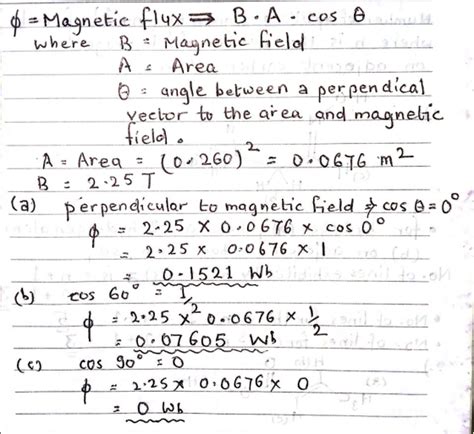 ϕ = Magnetic flux ⇒ B · A · cos θ
where B = Magnetic field
A = Area
θ = angle between a perpendical
vector to the area and magnetic
field.
A = Area = (0.260)² = 0.0676 m²
B = 2.25 T
(a) perpendicular to magnetic field ⇒ cos θ = 0°
ϕ = 2.25 × 0.0676 × cos 0°
= 2.25 × 0.0676 × 1
= 0.1521 Wb
(b) cos 60° = 1/2
ϕ = 2.25 × 0.0676 × 1/2
= 0.07605 Wb
(c) cos 90° = 0
ϕ = 2.25 × 0.0676 × 0
= 0 Wb